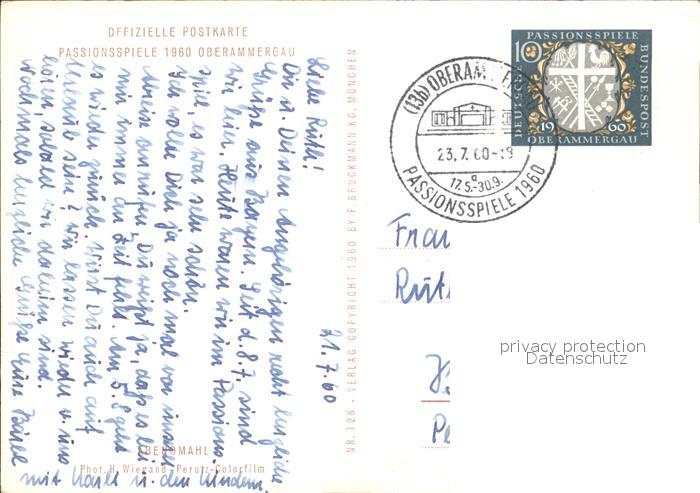 OFFIZIELLE POSTKARTE
PASSIONSSPIELE 1960 OBERAMMERGAU
21.7.60
Liebe Ruth!
Dir u. Deinen Angehörigen recht herzliche
Grüße aus Bayern. Seit d. 8.7. sind
wir hier. Heute waren wir im Passions-
spiel, es war sehr schön.
Ich wollte Dich ja noch mal vor unserer
Abreise anrufen, Du weißt ja, daß es bei
mir immer an Zeit fehlt. Am 5.8. geht
es wieder zurück. Wirst Du auch auf
Urlaub sein? Wir lassen wieder v. uns
hören, sobald wir daheim sind.
Nochmals herzliche Grüße Eure
mit Karl u. den Kindern.
ABENDMAHL
Phot. H. Wiegand - Perutz-Colorfilm
NR. 128 - VERLAG COPYRIGHT 1960 BY F. BRUCKMANN KG. MÜNCHEN
(13b) OBERAMMERGAU
23.7.60-18
a
17.5.-30.9.
PASSIONSSPIELE 1960
PASSIONSSPIELE
10
DEUTSCHE
BUNDESPOST
1960
OBERAMMERGAU
Frau
Ruth
privacy protection
Datenschutz